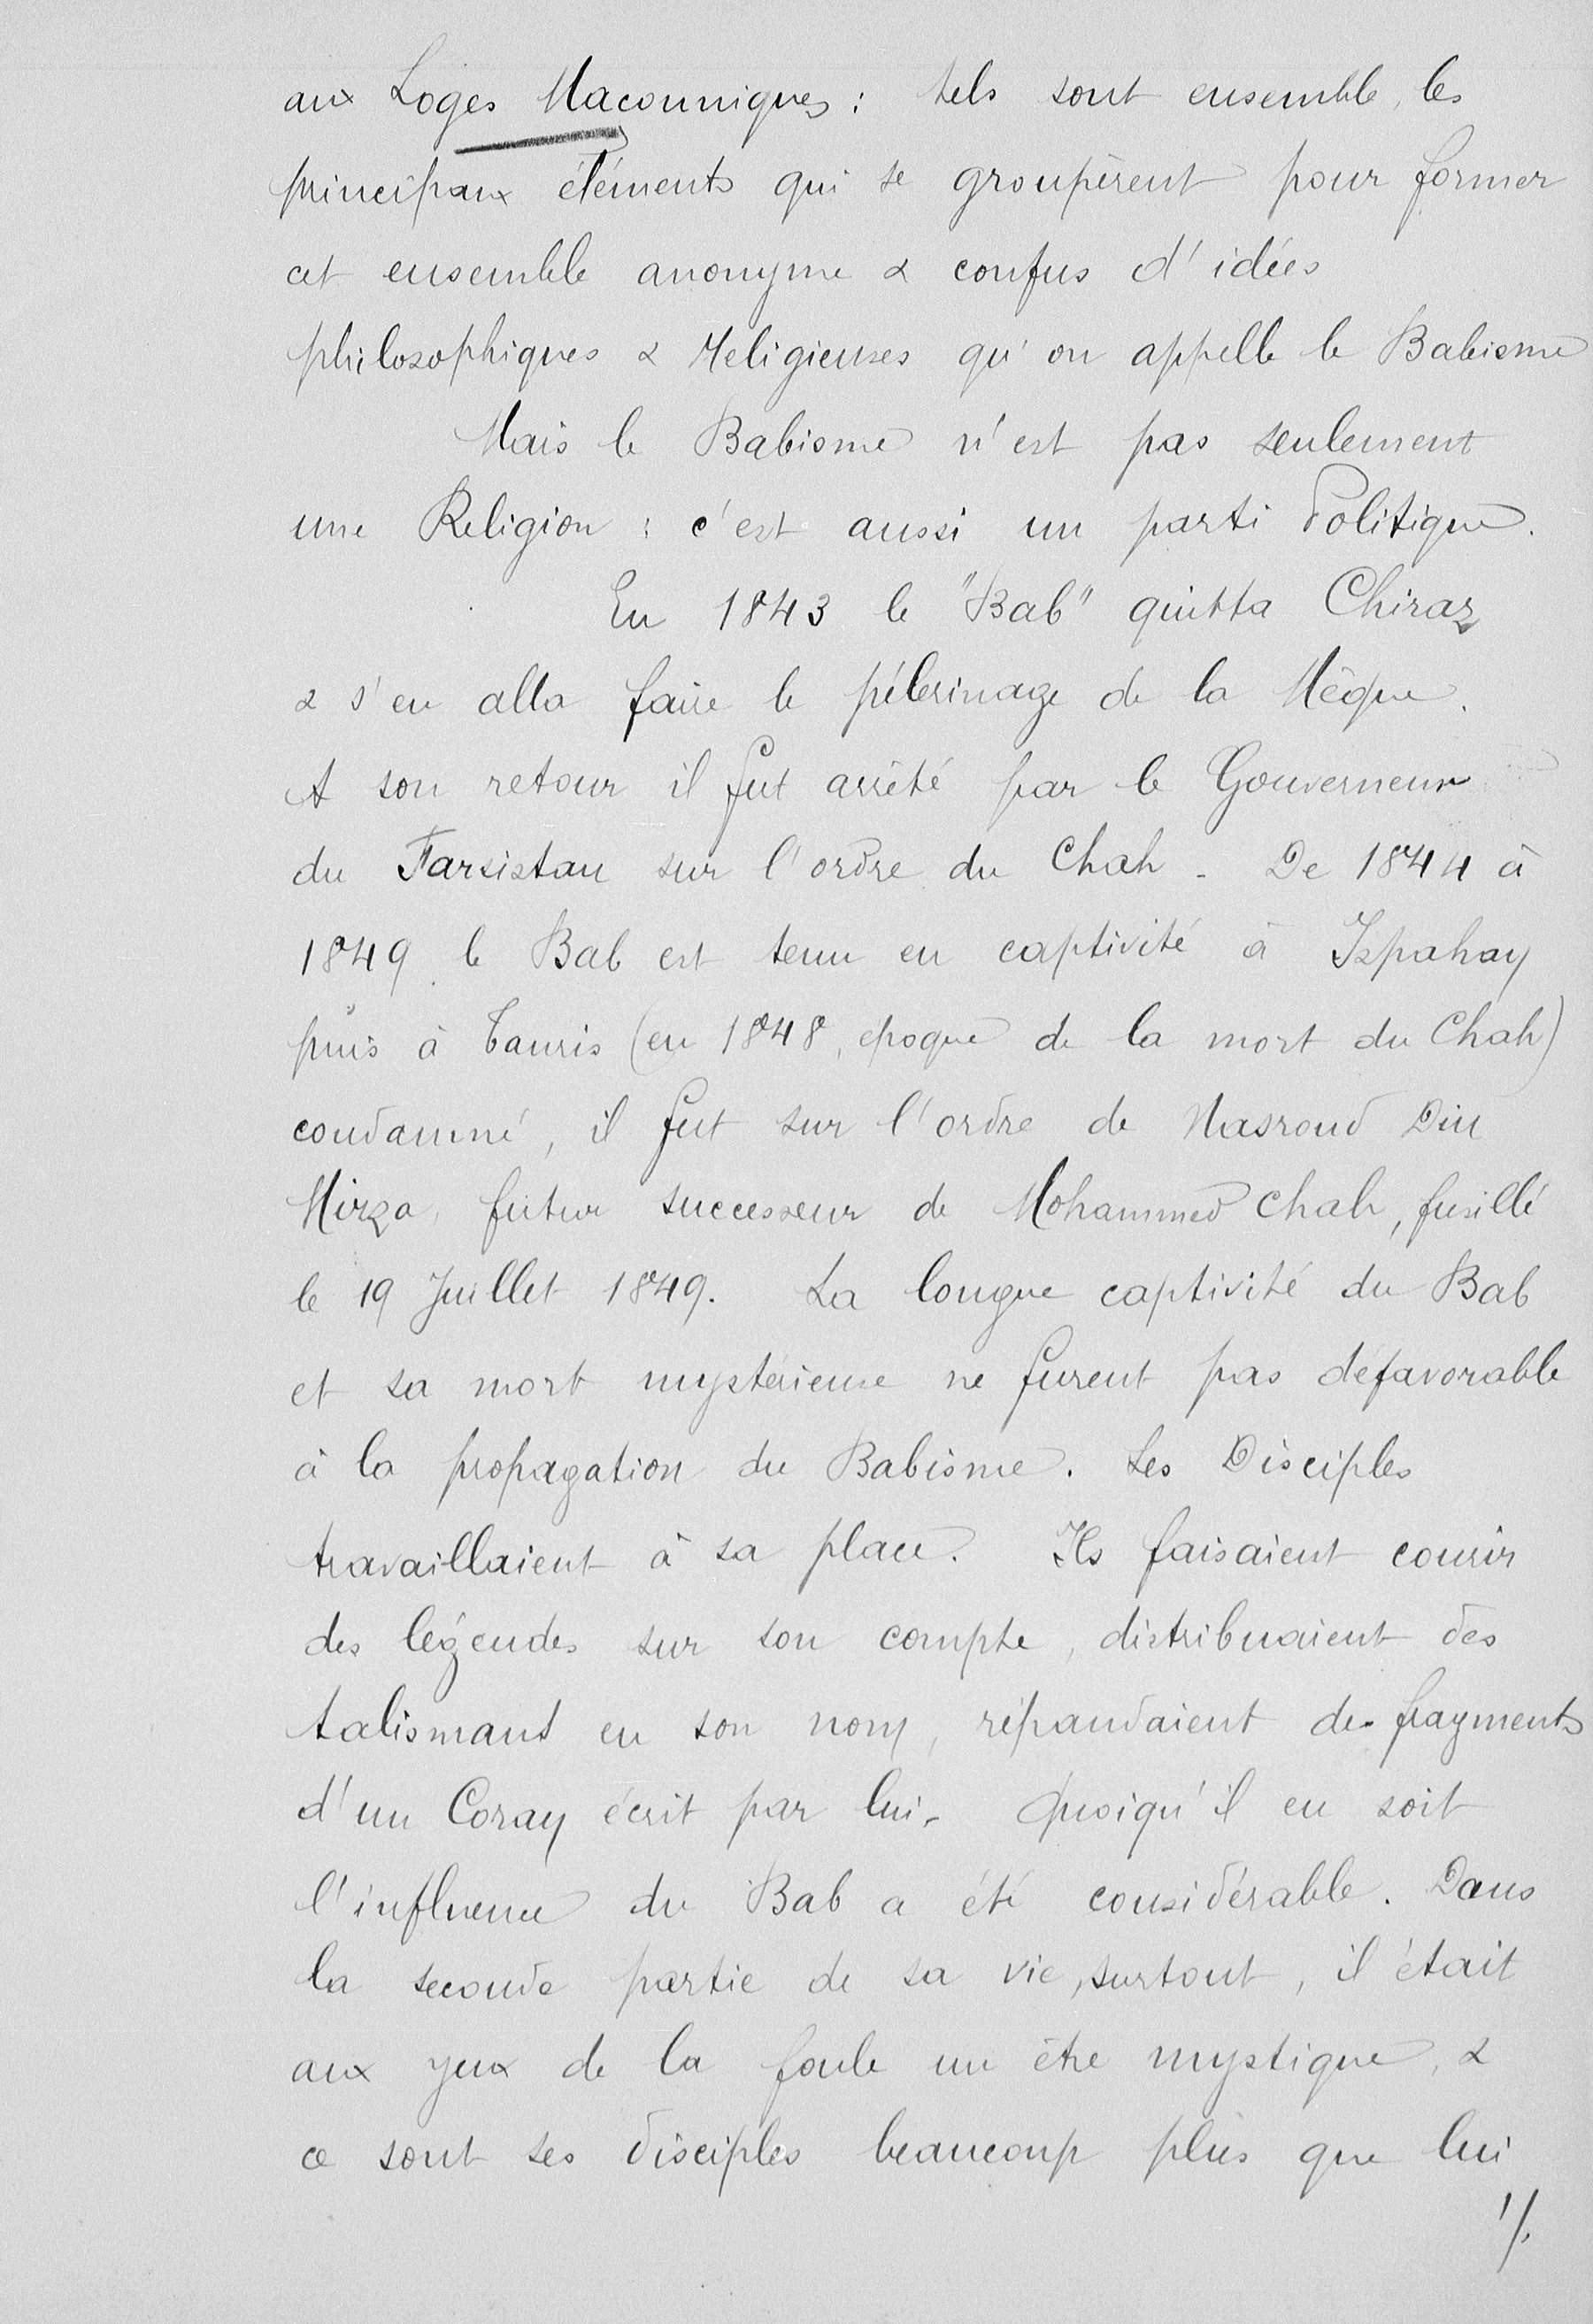 aux Loges Maconniques : tels sont ensemble, les
principaux éléments qui se groupèrent pour former
cet ensemble anonyme & confus d'idées
philosophiques & Religieuses qu'on appelle le Babisme
Mais le Babisme n'est pas seulement
une Religion : c'est aussi un parti Politique.
En 1843 le "Bab" quitta Chiraz
& s'en alla faire le pélerinage de la Mêque.
A son retour il fut arrêté par le Gouverneur
du Farsistan sur l'ordre du Chah - De 1844 à
1849 le Bab est tenu en captivité à Ispahan
puis à Tauris (en 1848, epoque de la mort du Chah)
condamné, il fut sur l'ordre de Nasroud Din
Mirza, futur successeur de Mohammed Chah, fusillé
le 19 Juillet 1849. La longue captivité du Bab
et sa mort mystérieuse ne furent pas défavorable
à la propagation du Babisme. Les Disciples
travaillaient à sa place. Ils faisaient courir
des légendes sur son compte, distribuaient des
talismans en son nom, répandaient des fragments
d'un Coran écrit par lui. Quoiqu'il en soit
l'influence du Bab a été considérable. Dans
la seconde partie de sa vie, surtout, il était
aux yeux de la foule un être mystique, &
ce sont ses disciples beaucoup plus que lui
'/.